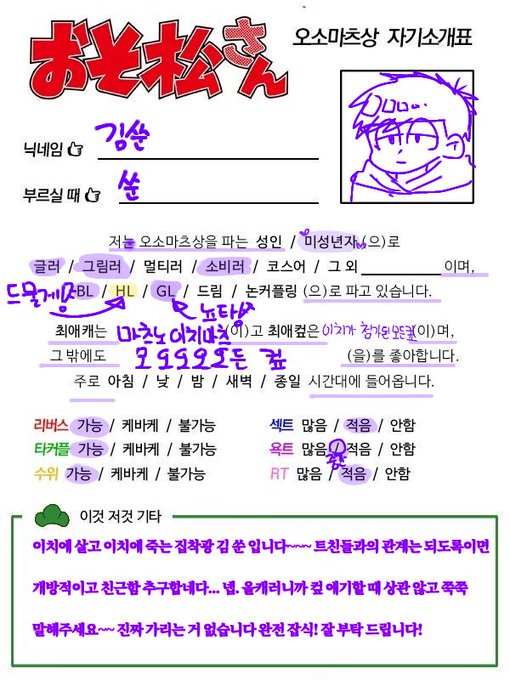 おそ松さん
오소마츠상 자기소개표
닉네임 김쑨
부르실 때 쑨
저는 오소마츠상을 파는 성인 / 미성년자 (으)로
글러 / 그림러 / 멀티러 / 소비러 / 코스어 / 그 외 이며,
드물게 BL / HL / GL / 드림 / 논커플링 (으)로 파고 있습니다.
뉴타입
최애캐는 마츠노 이치마츠 (이)고 최애컾은 이치가 첨가된 모든 컾 (이)며,
그 밖에도 모오오오오든 컾 (을)를 좋아합니다.
주로 아침 / 낮 / 밤 / 새벽 / 종일 시간대에 들어옵니다.
리버스 가능 / 케바케 / 불가능 섹트 많음 / 적음 / 안함
타커플 가능 / 케바케 / 불가능 욕트 많음 / 적음 / 안함
중간
수위 가능 / 케바케 / 불가능 RT 많음 / 적음 / 안함
이것 저것 기타
이치에 살고 이치에 죽는 집착광 김 쑨 입니다~~~ 트친들과의 관계는 되도록이면
개방적이고 친근함 추구합네다... 넵. 올캐러니까 컾 얘기할 때 상관 않고 쭉쭉
말해주세요~~ 진짜 가리는 거 없습니다 완전 잡식! 잘 부탁 드립니다!